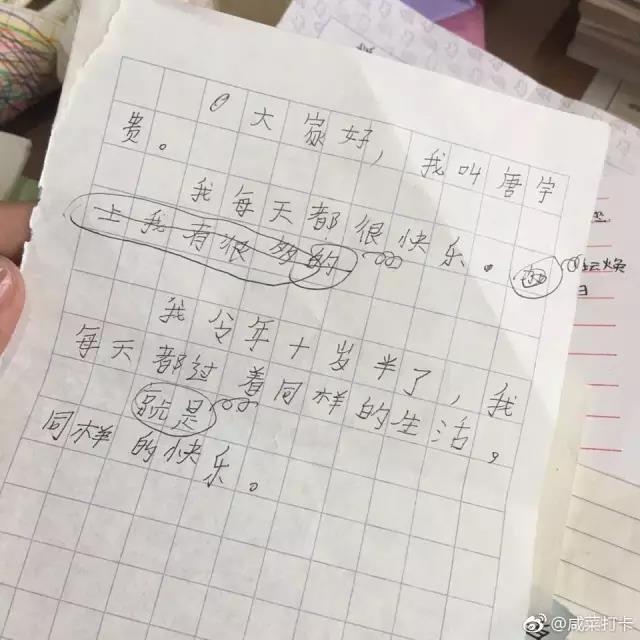 大家好，我叫唐宇
贵。
我每天都很快乐。
上我有很多的
我今年十岁半了，我
每天都过着同样的生活。
就是
同样的快乐。
坛焕
日
@咸菜打卡